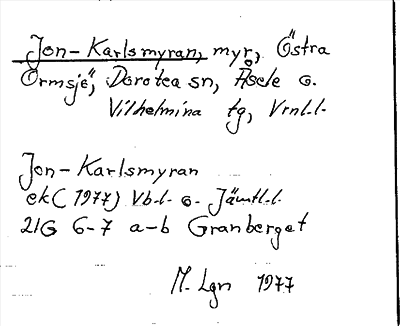 Jon-Karlsmyran, myr, Östra
Ormsjö, Dorotea sn, Åsele o.
Vilhelmina tg, Vrnl.l.
Jon-Karlsmyran
ek (1977) Vb.l. o. Jämtl.l.
21G 6-7 a-b Granberget
M. Lgn 1977